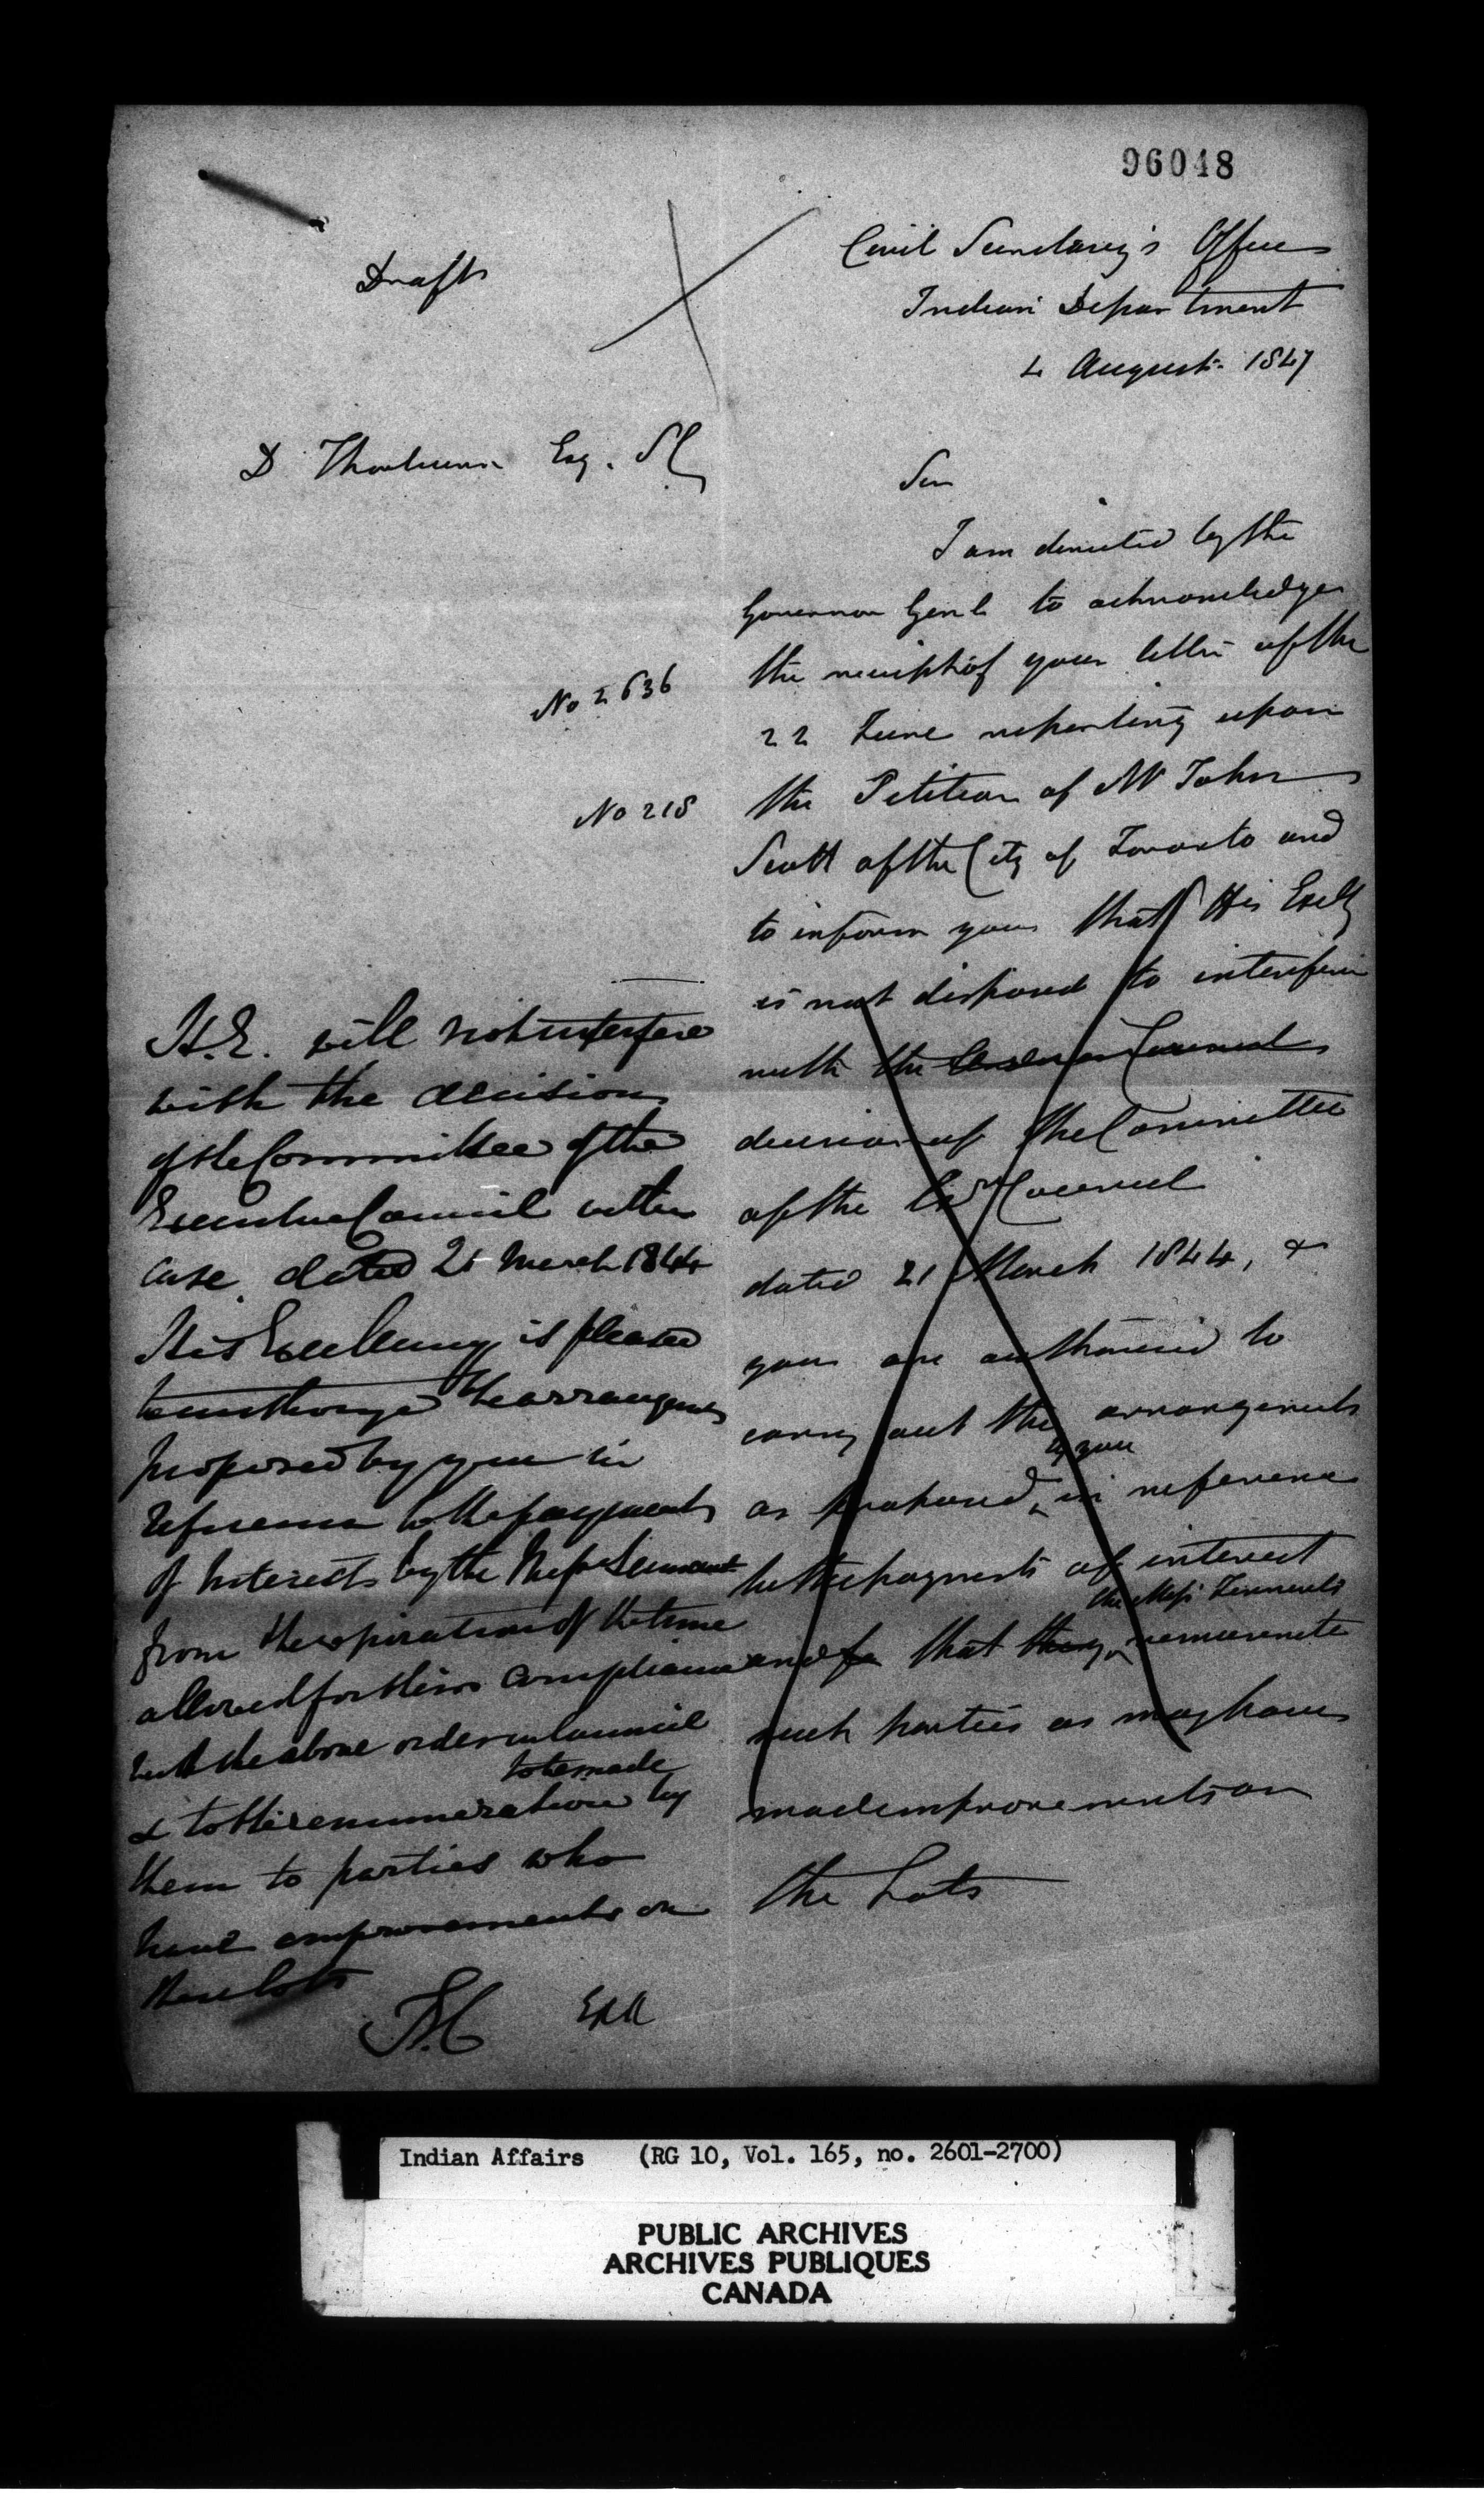 96048
Draft
Civil Secretary's Office
Indian Department
4 August 1847
D Thorburn Esq.
Sir
I am directed by the
Governor Genl to acknowledge
the receipt of your letter of the
No 2636
22 June reporting upon
No 218
the Petition of Mr John
Scott of the City of Toronto and
to inform you that His Exclly
is not disposed to interfere
with the Council
decision of the Committee
of the Council
dated 21 March 1844, &
you are authorised to
carry out the arrangements
as proposed by you in reference
to the payments of interest
and that they the Messrs remunerate
such parties as may have
made improvements on
the Lots
H.E. will not interfere
with the decision
of the Committee of the
Executive Council in the
case. dated 21 March 1844
His Excellency is pleased
to authorize the arrangements
proposed by you in
reference to the payments
of Interests by the Messrs
from the expiration of the time
allowed for their compliance
with the above order in Council
& to the renumeration to be made by
them to parties who
have improvements on
these lots
Indian Affairs (RG 10, Vol. 165, no. 2601-2700)
PUBLIC ARCHIVES
ARCHIVES PUBLIQUES
CANADA